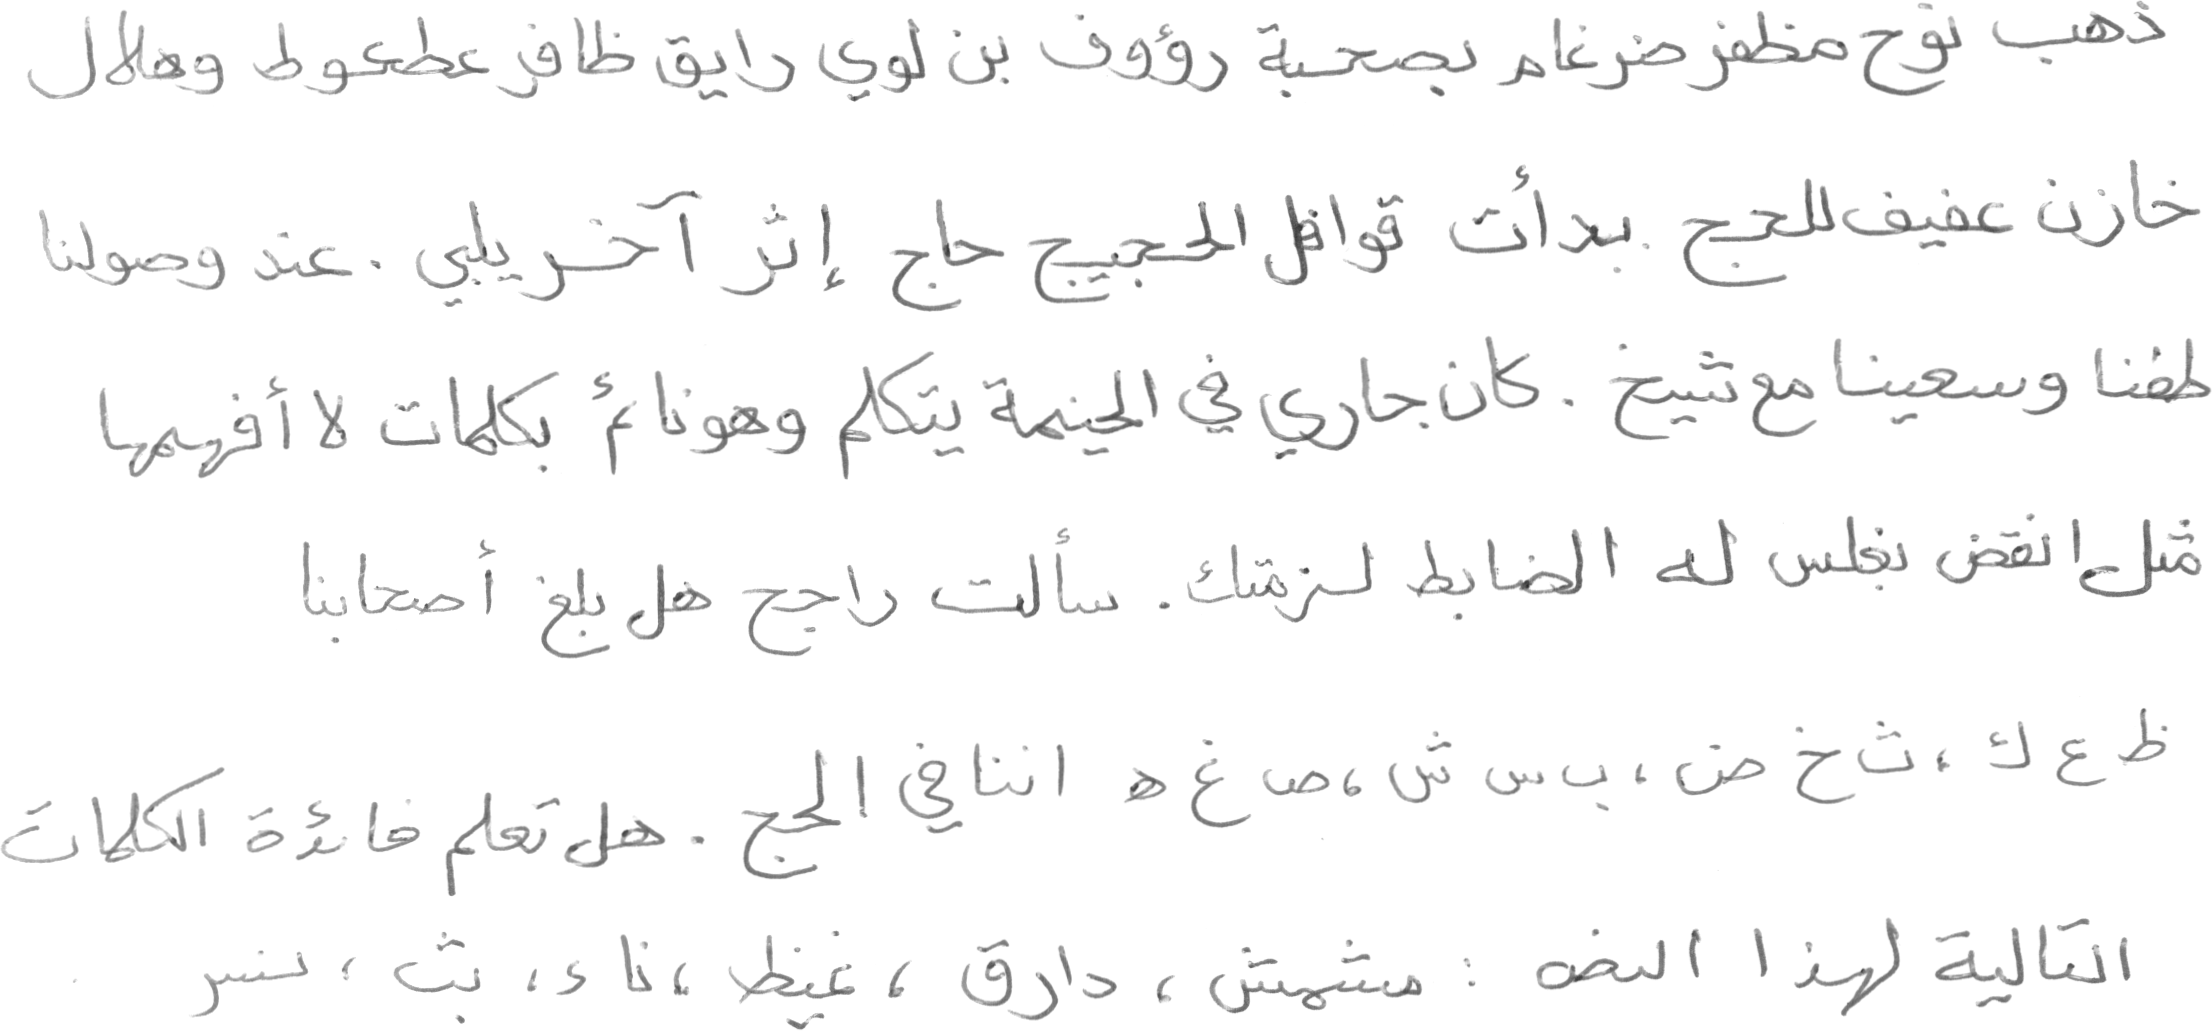 ذهب نوح مظفر ضرغام بصحبة رؤوف بن لوي رايق ظافر عطعوط وهلال
خازن عفيف للحج. بدأت قوافل الحجيج حاج إثر آخر يلبي. عند وصولنا
طفنا وسعينا مع شيخ. كان جاري في الخيمة يتكلم وهو نائم بكلمات لا أفهمها
مثل انقض بغلس له الضابط لزمتك. سألت راجح هل بلغ أصحابنا
ظ ع ك، ث خ ض، ب س ش، ص غ ه اننا في الحج. هل تعلم فائدة الكلمات
التالية لهذا النص: مشمش، دارق، غيظ، ناء، بث، نسر